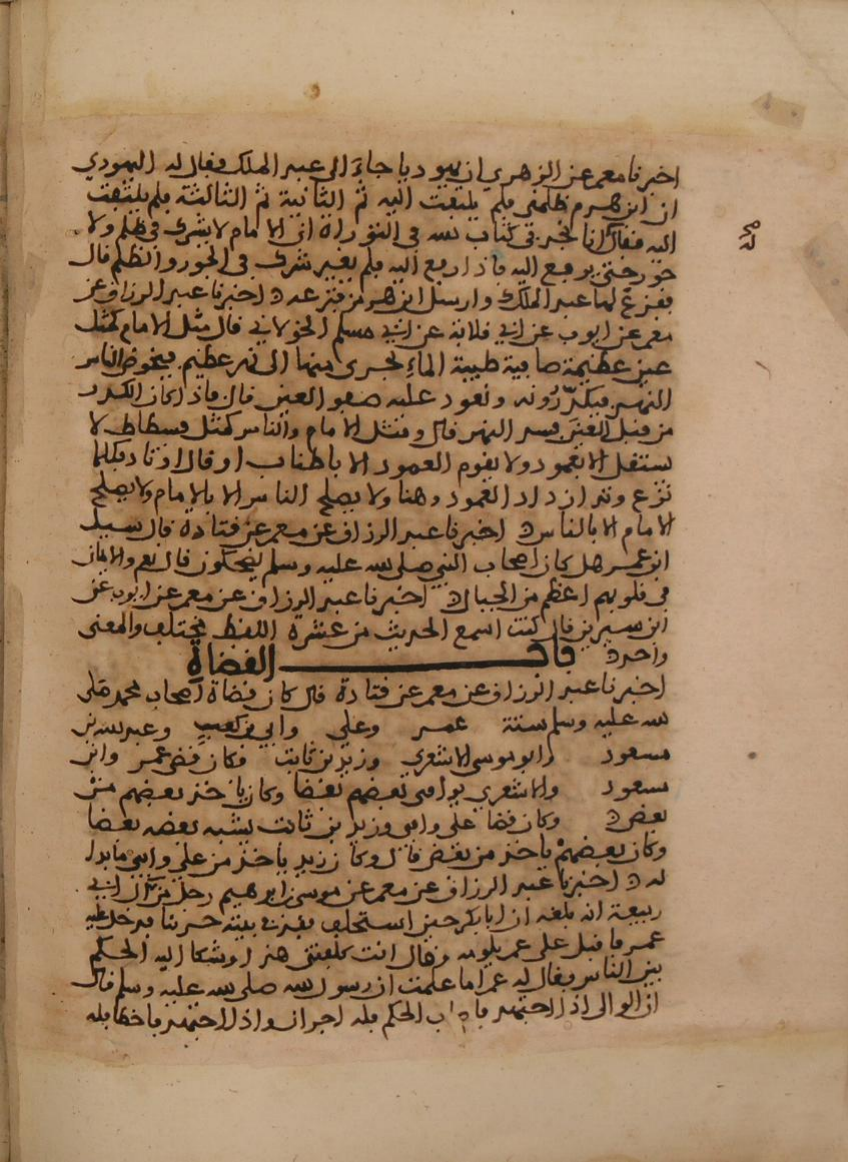 اخبرنا معمر عن الزهري ان يهوديا جاء الى عبد الملك فقال له اليهودي
ان ابن هرمز ظلمني فلم يلتفت اليه ثم الثانية ثم الثالثة فلم يلتفت
اليه فقال انا نجد في كتاب الله في التوراة ان الامام لا يشرك في ظلم ولا
جور حتى يرفع اليه فاذا رفع اليه فلم يغير شرك في الجور والظلم قال
ففزع لها عبد الملك وارسل الى ابن هرمز فنزعه اخبرنا عبد الرزاق عن
معمر عن ايوب عن ابي قلابة عن ابي مسلم الخولاني قال مثل الامام كمثل
عين عظيمة صافية طيبة الماء يجري منها الى نهر عظيم فيخوض الناس
النهر فيكدرونه ويعود عليه صفو العين قال فاذا كان الكدر
من قبل العين فسد النهر قال ومثل الامام والناس كمثل فسطاط لا
يستقل الا بعمود ولا يقوم العمود الا باطناب او قال اوتاد فكلما
نزع وتد ازداد العمود وهنا ولا يصلح الناس الا بالامام ولا يصلح
الامام الا بالناس اخبرنا عبد الرزاق عن معمر عن قتادة قال سئل
ابن عمر هل كان اصحاب النبي صلى الله عليه وسلم يضحكون قال نعم والايمان
في قلوبهم اعظم من الجبال اخبرنا عبد الرزاق عن معمر عن ايوب عن
ابن سيرين قال كنت اسمع الحديث من عشرة اللفظ مختلف والمعنى
واحد باب القضاة
اخبرنا عبد الرزاق عن معمر عن قتادة قال كان قضاة اصحاب محمد صلى
الله عليه وسلم ستة عمر وعلي وابي بن كعب وعبد الله بن
مسعود وابو موسى الاشعري وزيد بن ثابت فكان قضى عمر وابن
مسعود والاشعري يوافق بعضهم بعضا وكان ياخذ بعضهم من
بعض وكان قضا علي وابي وزيد بن ثابت يشبه بعضه بعضا
وكان بعضهم ياخذ من بعض قال وكان زيد ياخذ من علي وابي ما بدا
له اخبرنا عبد الرزاق عن معمر عن موسى بن ابرهيم رجل من آل ابي
ربيعة انه بلغه ان ابا بكر حين استخلف قعد في بيته حزينا فدخل عليه
عمر فاقبل على عمر يلومه وقال انت كلفتني هذا وشكا اليه الحكم
بين الناس فقال له عمر اما علمت ان رسول الله صلى الله عليه وسلم قال
ان الوالي اذا اجتهد فاصاب الحكم فله اجران واذا اجتهد فاخطا فله